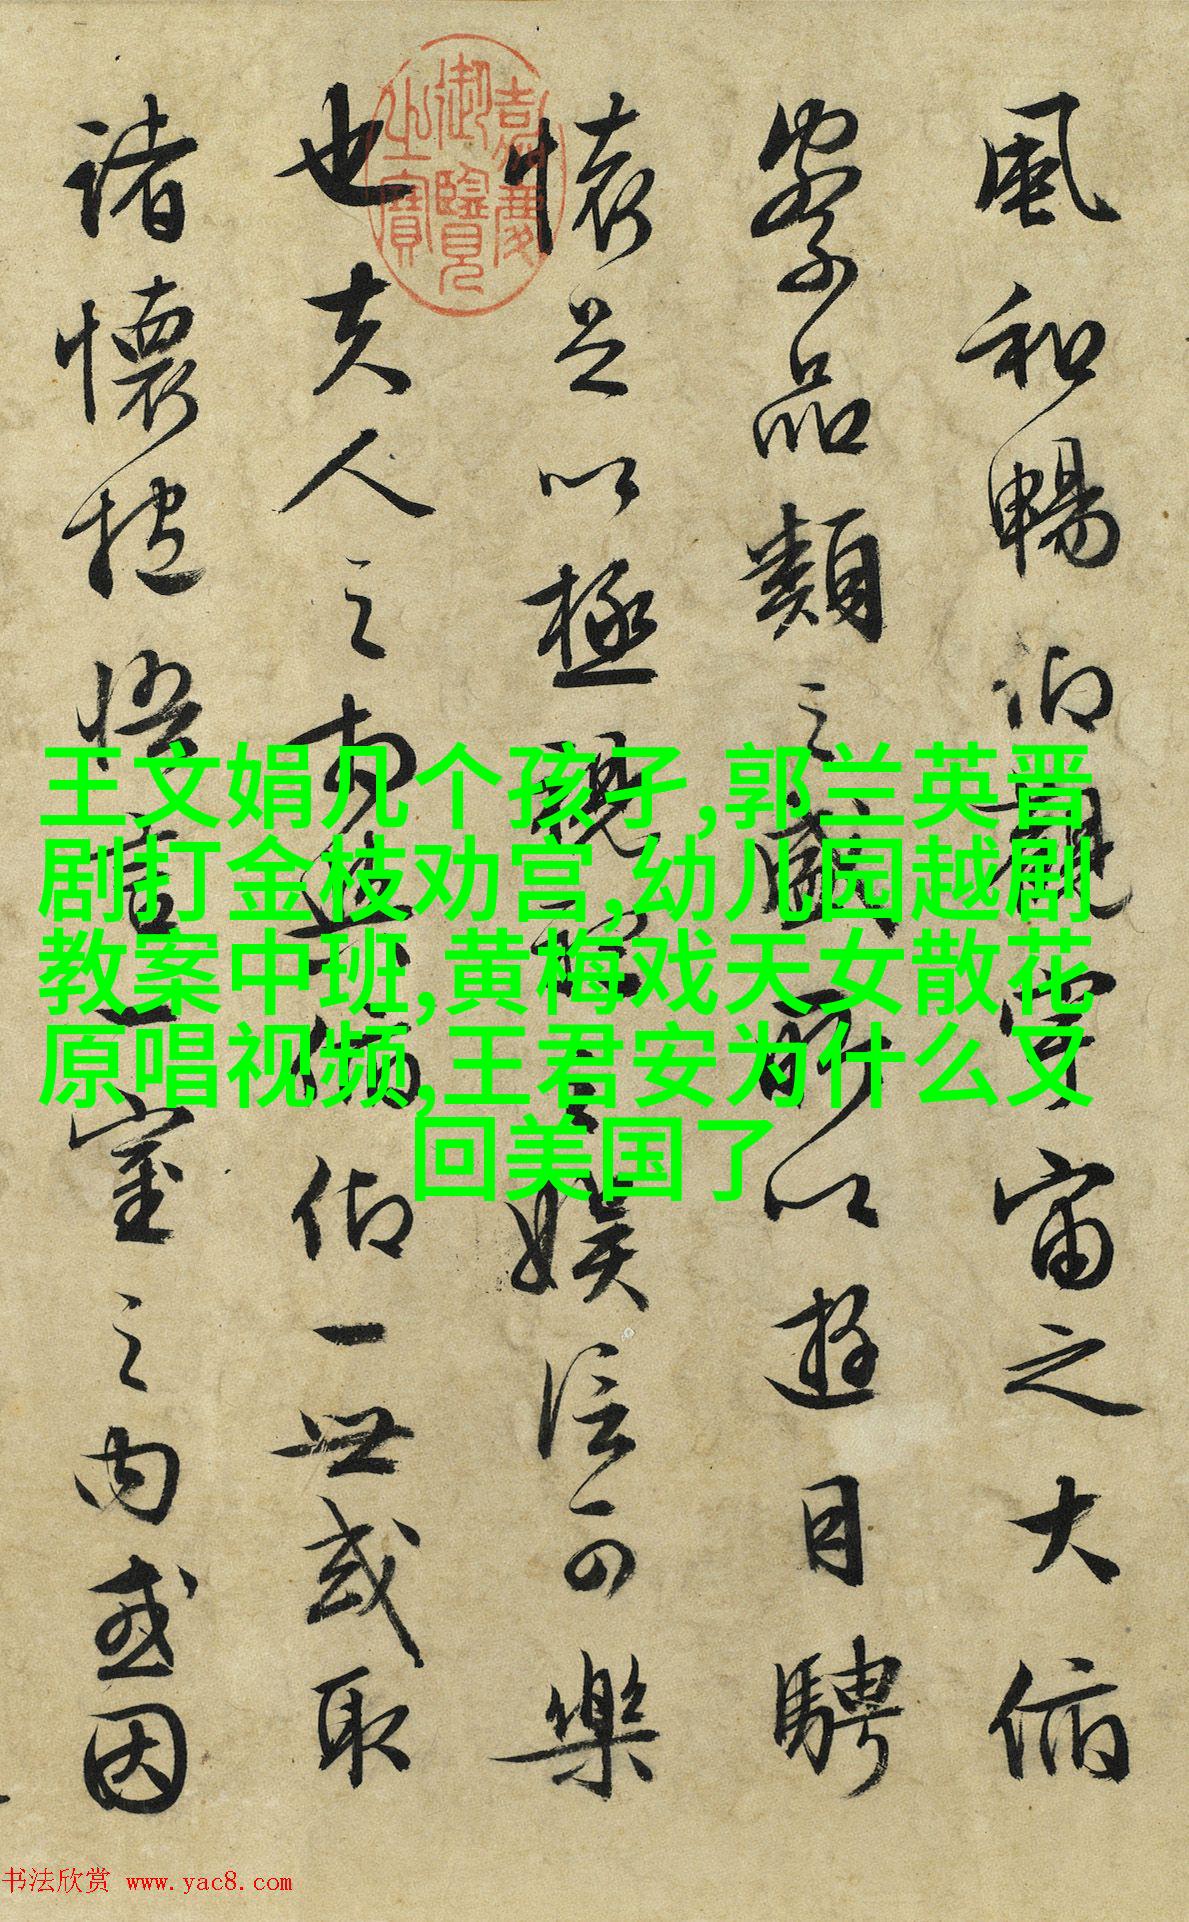 風和暢仰觀宇宙之大俯
察品類之盛所以遊目騁
懷足以極視聽之娛信可樂
也夫人之相與俯仰一世或取
諸懷抱悟言一室之內或因
嘉慶
御覽
之寶
王文娟几个孩子,郭兰英晋
剧打金枝劝宫,幼儿园越剧
教案中班,黄梅戏天女散花
原唱视频,王君安为什么又
回美国了
书法欣赏 www.yac8.com